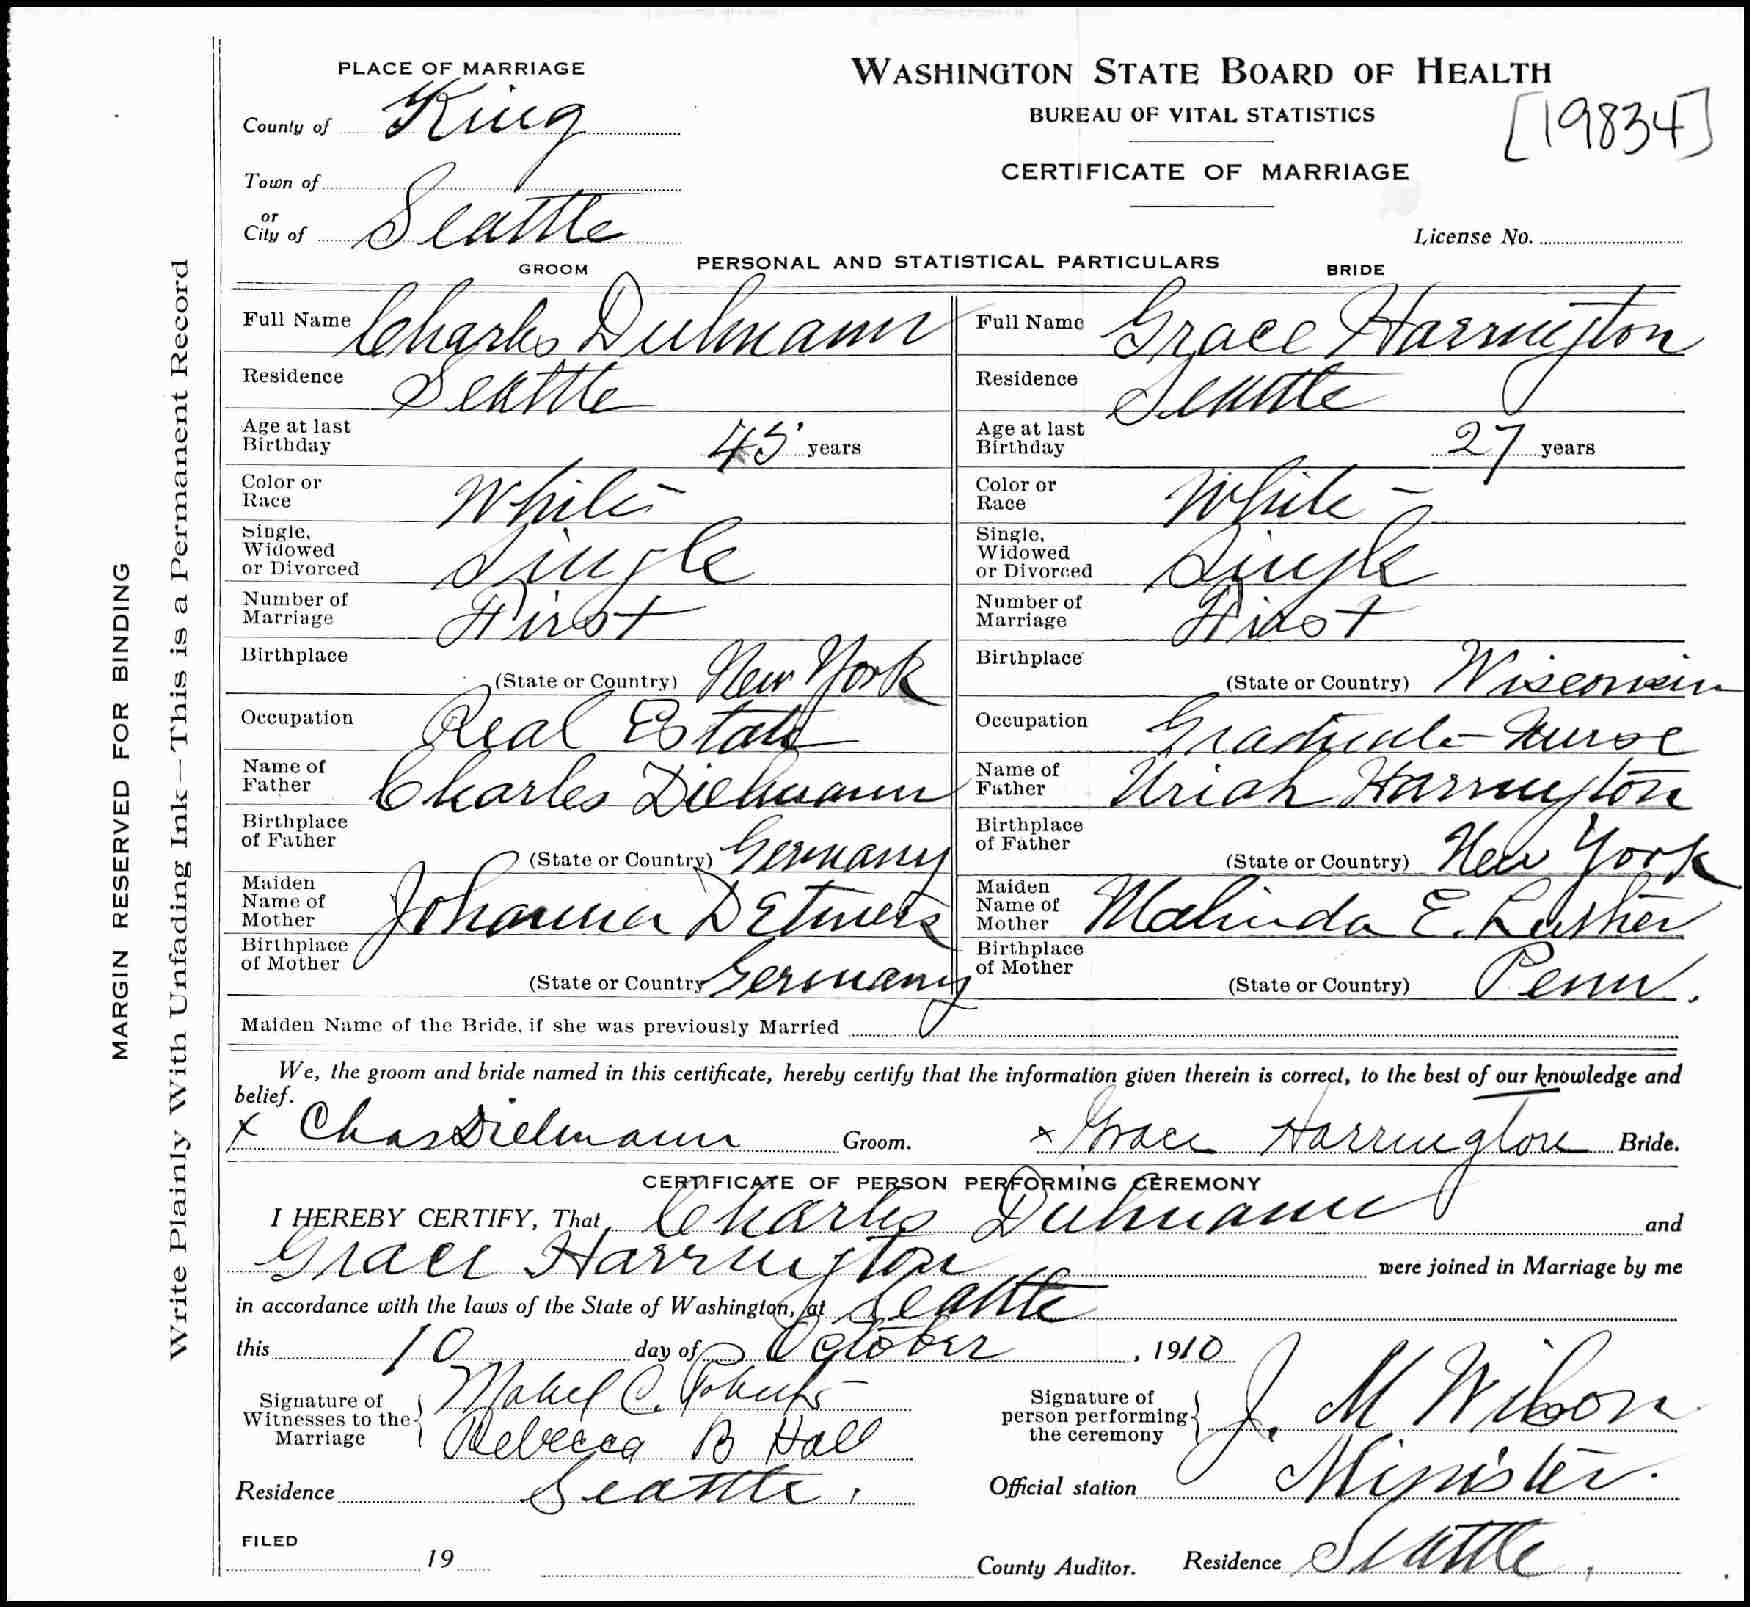 PLACE OF MARRIAGE
WASHINGTON STATE BOARD OF HEALTH
BUREAU OF VITAL STATISTICS
[19834]
County of King
CERTIFICATE OF MARRIAGE
Town of
or
City of Seattle
License No.
PERSONAL AND STATISTICAL PARTICULARS
GROOM
BRIDE
Full Name Charles Dielmann
Full Name Grace Harrington
Residence Seattle
Residence Seattle
Age at last Birthday 45 years
Age at last Birthday 27 years
Color or Race White
Color or Race White
Single, Widowed or Divorced Single
Single, Widowed or Divorced Single
Number of Marriage First
Number of Marriage First
Birthplace (State or Country) New York
Birthplace (State or Country) Wisconsin
Occupation Real Estate
Occupation Graduate Nurse
Name of Father Charles Dielmann
Name of Father Uriah Harrington
Birthplace of Father (State or Country) Germany
Birthplace of Father (State or Country) New York
Maiden Name of Mother Johanna Detmers
Maiden Name of Mother Malinda E. Lusher
Birthplace of Mother (State or Country) Germany
Birthplace of Mother (State or Country) Penn.
Maiden Name of the Bride, if she was previously Married
We, the groom and bride named in this certificate, hereby certify that the information given therein is correct, to the best of our knowledge and
belief.
x Chas Dielmann Groom. x Grace Harrington Bride.
CERTIFICATE OF PERSON PERFORMING CEREMONY
I HEREBY CERTIFY, That Charles Dielmann and
Grace Harrington were joined in Marriage by me
in accordance with the laws of the State of Washington, at Seattle
this 10 day of October, 1910
Signature of Witnesses to the Marriage Mabel C. Roberts
Rebecca B Hall
Signature of person performing the ceremony J. M Wilson
Residence Seattle.
Official station Minister.
FILED
19
County Auditor.
Residence Seattle.
MARGIN RESERVED FOR BINDING
Write Plainly With Unfading Ink—This is a Permanent Record